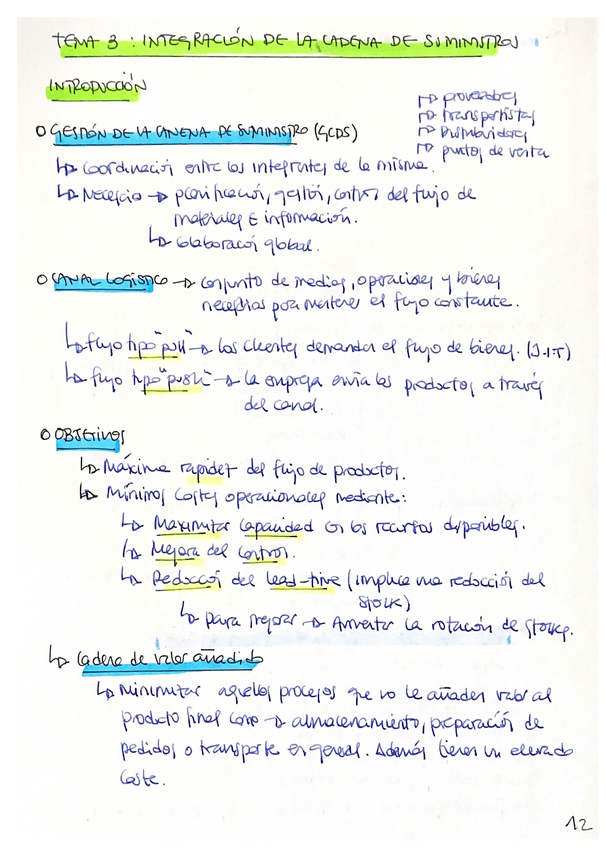 TEMA 3 : INTEGRACIÓN DE LA CADENA DE SUMINISTROS
INTRODUCCIÓN
O GESTIÓN DE LA CADENA DE SUMINISTRO (GCDS)
↳ proveedores
↳ transportistas
↳ Distribuidores
↳ puntos de venta
↳ Coordinación entre los integrantes de la misma.
↳ Necesario → planificación, gestión, control del flujo de
materiales E información.
↳ Colaboración global.
O CANAL LOGÍSTICO → conjunto de medios, operaciones y bienes
necesarios para mantener el flujo constante.
↳ flujo tipo "pull" → los clientes demandan el flujo de bienes. (J.I.T)
↳ flujo tipo "push" → la empresa envía los productos a través
del canal.
O OBJETIVOS
↳ Máxima rapidez del flujo de productos.
↳ Mínimos costes operacionales mediante:
↳ Maximizar capacidad con los recursos disponibles.
↳ Mejora del control.
↳ Reducción del lead-time (implica una reducción del
stock)
↳ para mejorar → Aumentar la rotación de stocks.
↳ Cadena de valor añadido
↳ Minimizar aquellos procesos que no le añaden valor al
producto final como → almacenamiento, preparación de
pedidos o transporte en general. Además tienen un elevado
coste.
12